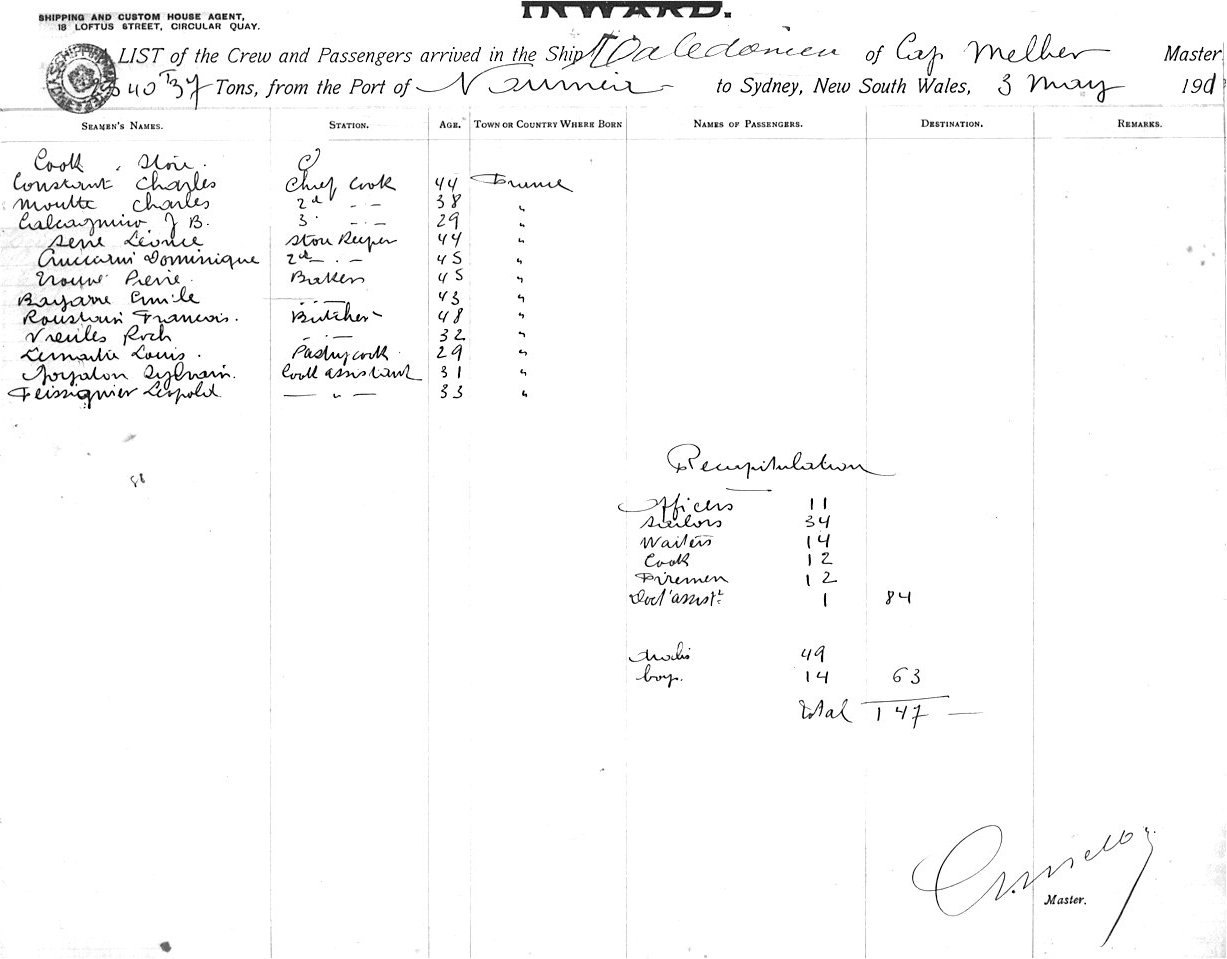 INWARD.
SHIPPING AND CUSTOM HOUSE AGENT,
18 LOFTUS STREET, CIRCULAR QUAY.
LIST of the Crew and Passengers arrived in the Ship Caledonien of Cap Melher Master
40 T 37 Tons, from the Port of Noumeia to Sydney, New South Wales, 3 May 190
SEAMEN'S NAMES. STATION. AGE. TOWN OR COUNTRY WHERE BORN NAMES OF PASSENGERS. DESTINATION. REMARKS.
Cook
Constant Charles Chief Cook 44 France
Moutte Charles 2d - - 38 "
Calcagnino J B. 3 - - 29 "
Sene Léonce Store Keeper 44 "
Cruciani Dominique 2d - - 45 "
Pierre Bakers 45 "
Emile - - 43 "
Roustain Francois. Butcher 48 "
Roch - - 32 "
Lemaitre Louis. Pastrycook 29 "
Sylvain. Cook assistant 31 "
Feissignier Léopold — " — 33 "
Recapitulation
Officers 11
Sailors 34
Waiters 14
Cook 12
Firemen 12
Doct' assist. 1 84
49
boys. 14 63
Total 147 —
Master.